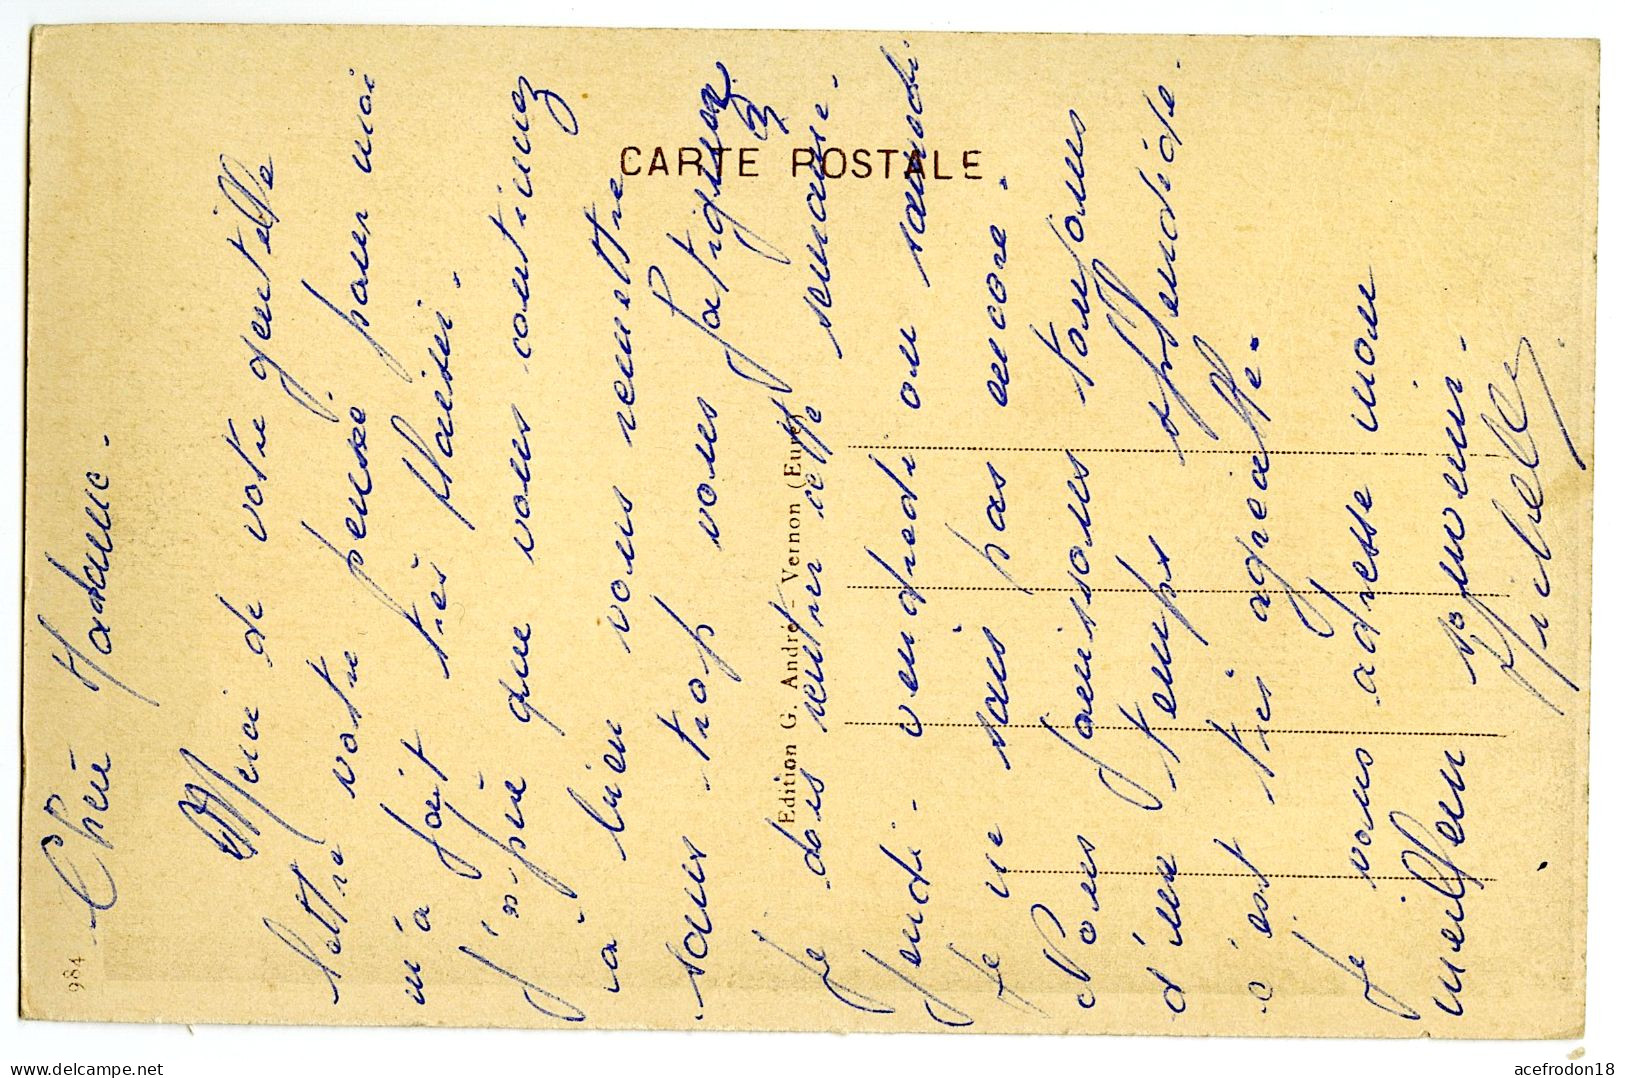 CARTE POSTALE
984
Edition G. André - Vernon (Eure)
Chère Madame.
Merci de votre gentille
lettre votre pensée pour moi
m'a fait très plaisir.
J'espère que vous continuez
à bien vous remettre
sans trop vous fatiguez
Je dois rentrer cette semaine.
Jeudi - vendredi ou samedi
je ne sais pas encore.
Nous jouissons toujours
d'un temps splendide.
c'est très agréable.
Je vous adresse mon
meilleur souvenir.
Michelle.
acefrodon18